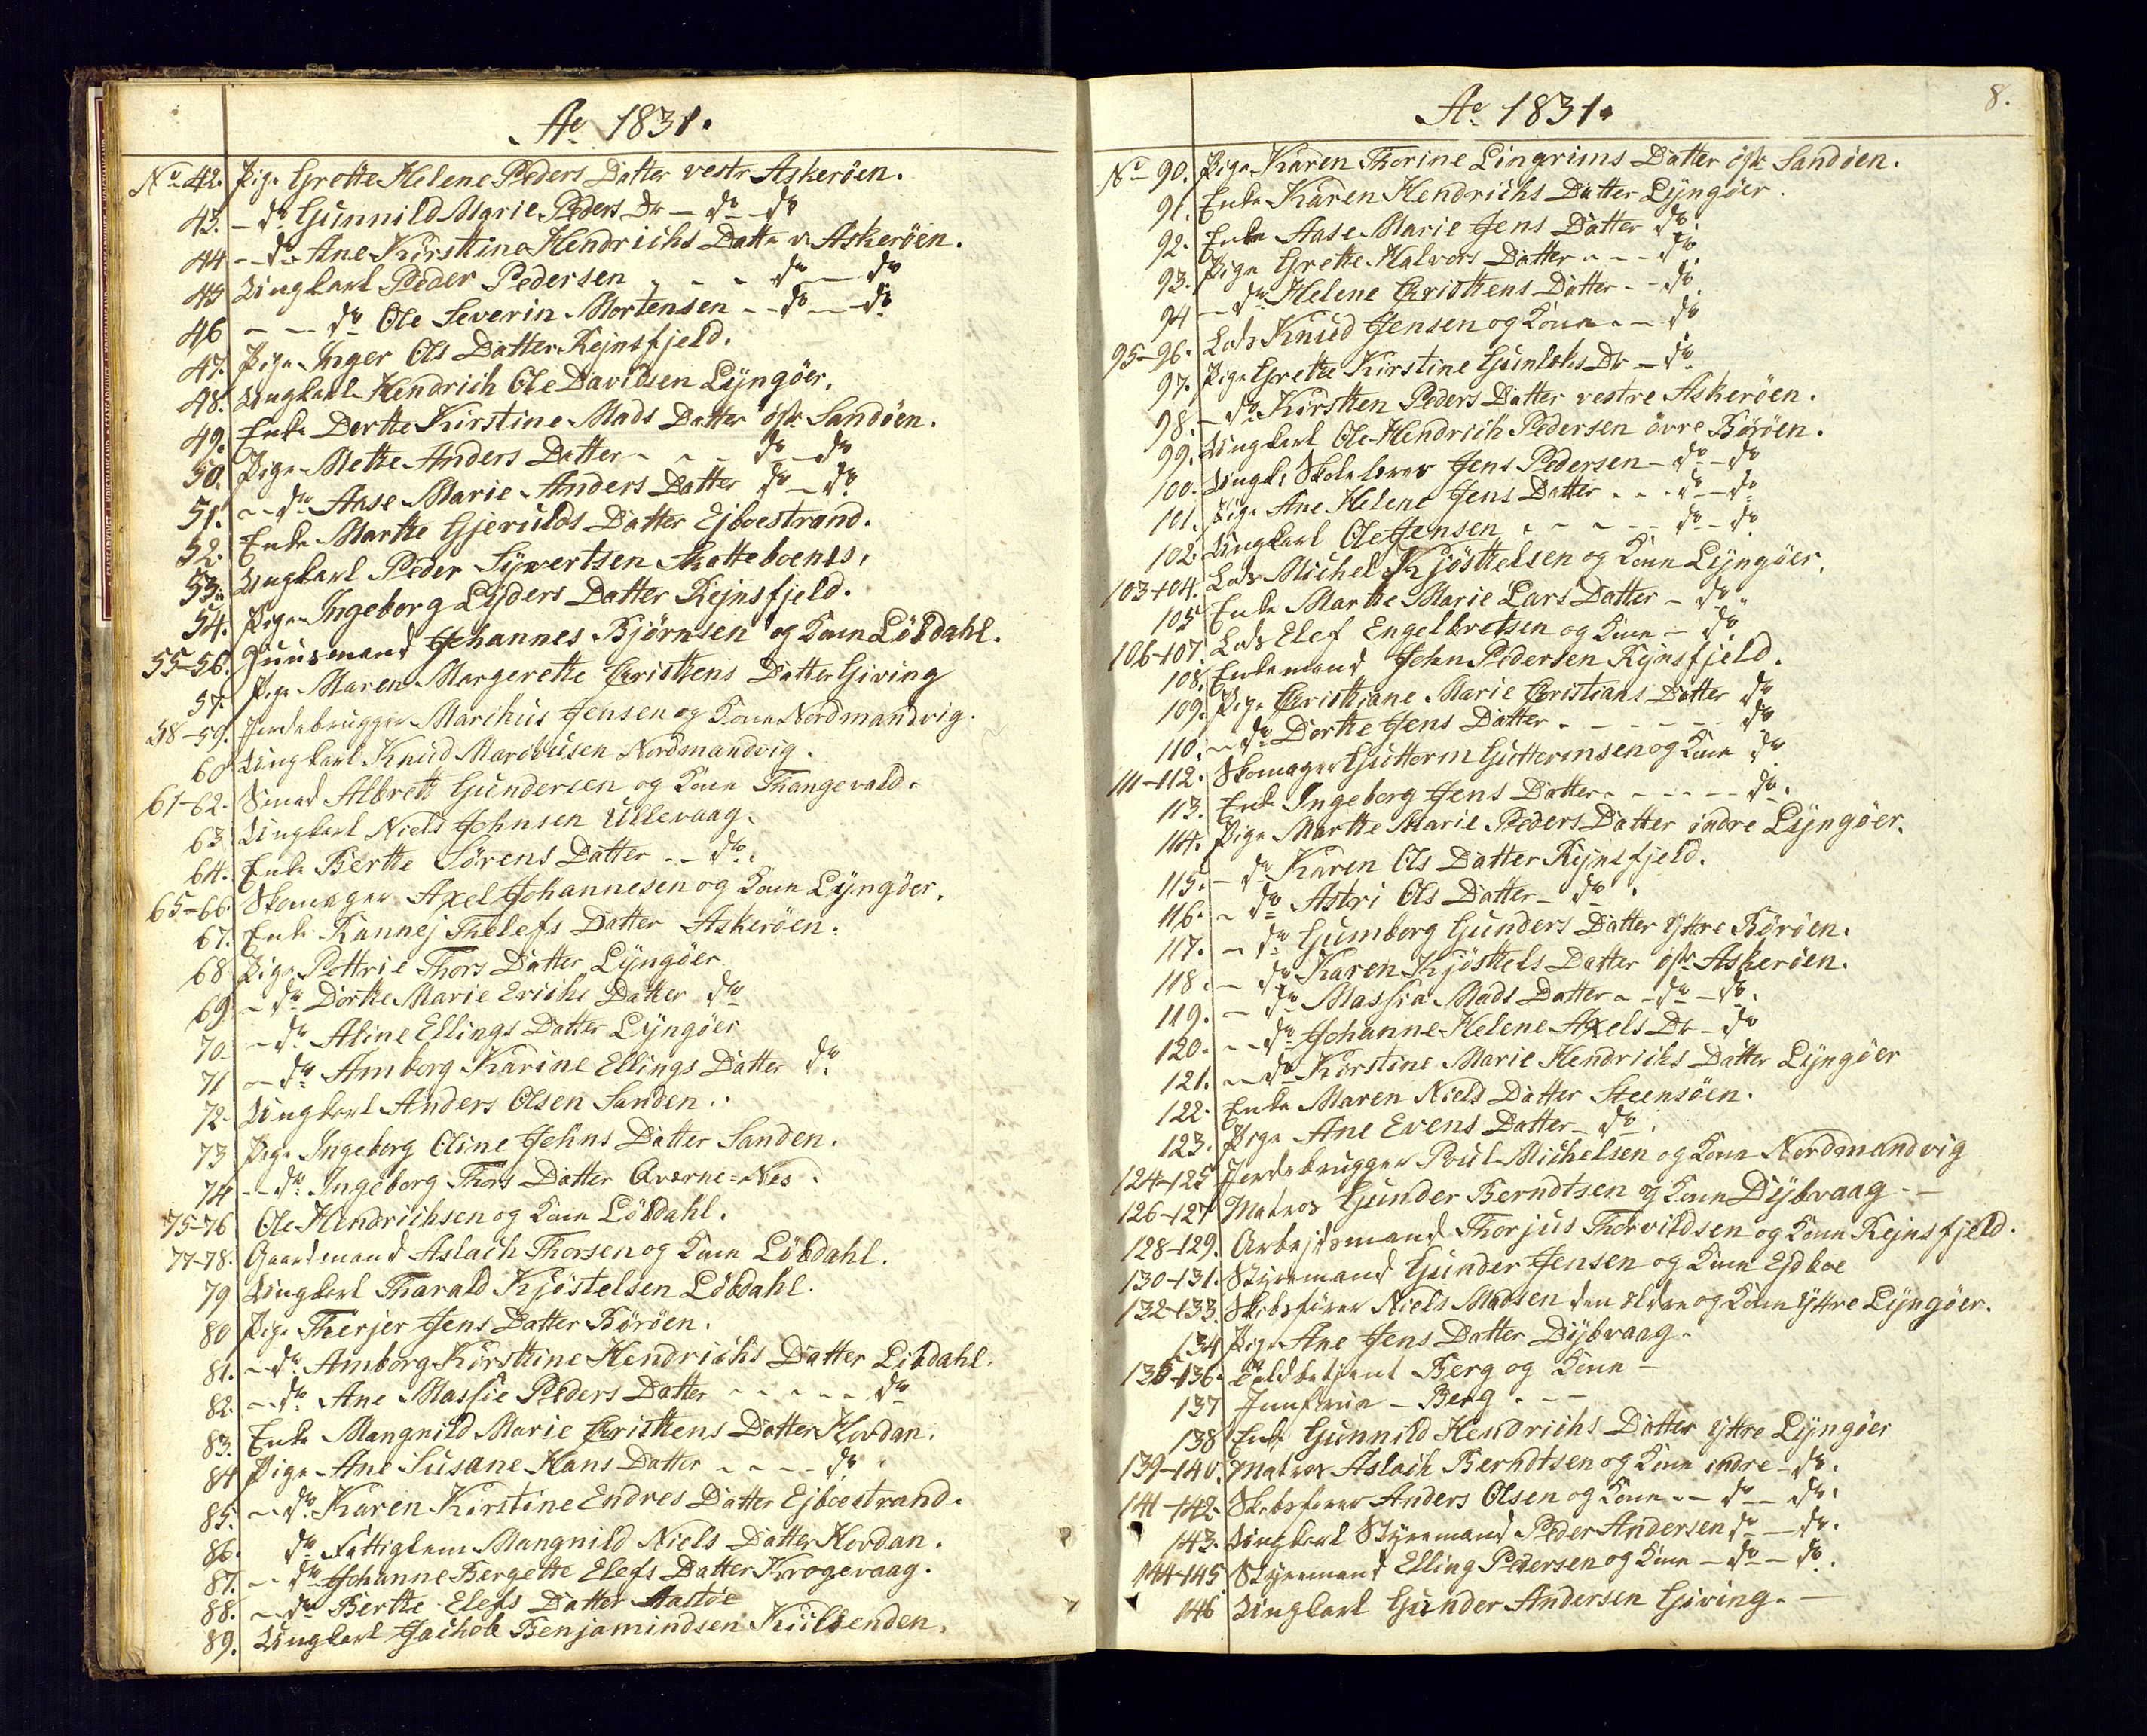 Ao 1831.
No 42. Pige Grethe Helene Peders Datter vestr Askerøen.
43. – do Gunnild Marie Peders Dr – do – do
44 – do Ane Kirstine Hendrichs Datte v. Askerøen.
45 Ungkarl Peder Pedersen - - - do – do
46 – – do Ole Severin Mortensen – do – do
47. Pige Inger Ols Datter Rejnsfjeld.
48. Ungkarl Hendrich Ole Davidsen Lyngøer.
49. Enke Dorthe Kirstine Mads Datter østr Sandøen.
50. Pige Mette Anders Datter - - - do – do
51. – do Aase Marie Anders Datter do – do
52. Enke Marthe Gjerulds Datter Ejboestrand.
53. Ungkarl Peder Syvertsen Skatteboens.
54. Pige Ingeborg Lyders Datter Rejnsfjeld.
55–56. Huusmand Johannes Bjørnsen og Kone Løvdahl.
57. Pige Maren Margerethe Christens Datter Giving
58–59. Jordebrugger Marchus Jensen og Kone Nordmandvig.
60 Ungkarl Knud Marchusen Nordmandvig.
61–62. Smed Albrett Gundersen og Kone Thangevald.
63. Ungkarl Niels Johnsen Ullevaag.
64. Enke Berthe Sørens Datter – – do.
65–66. Skomager Axel Johannesen og Kone Lyngøer.
67. Enke Rannej Thelefs Datter Askerøen.
68 Pige Pettrie Thors Datter Lyngøer
69 – do Dorthe Marie Erichs Datter do
70. – do Aline Ellings Datter Lyngøer
71 – do Amborg Karine Ellings Datter do
72. Ungkarl Anders Olsen Sanden.
73 Pige Ingeborg Oline Johns Datter Sanden.
74 – – do Ingeborg Thors Datter Qværne=Nes.
75–76 Ole Hendrichsen og Kone Løvdahl.
77–78. Gaardmand Aslach Thorsen og Kone Løvdahl.
79 Ungkarl Tharald Kjøstelsen Løvdahl.
80 Pige Therjer Jens Datter Børøen.
81. – do Amborg Kirstine Hendrichs Datter Løvdahl.
82. – do Ane Massie Peders Datter - - - - - do
83. Enke Mangnild Marie Christens Datter Hovdan.
84 Pige Ane Susane Hans Datter - - - - do
85. – do Karen Kirstine Endres Datter Ejboestrand.
86. do Fattiglem Mangnild Niels Datter Hovdan.
87. – do Johanne Bergette Elefs Datter Krogevaag.
88. – do Berthe Elefs Datter Aastøe
89. Ungkarl Jachob Benjamindsen Kiilsenden.
8.
Ao 1831.
No 90. Pige Karen Thorine Lingrims Datter østr Sandøen.
91. Enke Karen Hendrichs Datter Lyngøer.
92. Enke Aase Marie Jens Datter do
93. Pige Grethe Halvors Datter - - - do
94 – do Helene Christens Datter - - do
95–96. Lods Knud Jensen og Kone - – do
97. Pige Grethe Kirstine Gunlehs Dr – do
98. – do Kirsten Peders Datter vestre Askerøen.
99. Ungkarl Ole Hendrich Pedersen øvre Børøen.
100. Ungk: Skolelærer Jens Pedersen – do – do
101. Pige Ane Helene Jens Datter - - - do – do
102. Ungkarl Ole Jensen - - - - - do – do
103–104. Lods Michel Kjøstelsen og Kone Lyngøer.
105 Enke Marthe Marie Lars Datter – do
106–107. Lods Elef Engelbretsen og Kone – do
108. Enkemand John Pedersen Rejnsfjeld.
109. Pige Christjane Marie Christians Datter do
110. – do Dorthe Jens Datter - - - - - do
111–112. Skomager Guttorm Guttormsen og Kone do
113. Enke Ingeborg Jens Datter - - - - - do
114. Pige Marthe Marie Peders Datter indre Lyngøer.
115. – do Karen Ols Datter Rejnsfjeld.
116. – do Astri Ols Datter – do
117. – do Gumborg Gunders Datter yttre Børøen.
118. – do Karen Kjøstels Datter østr Askerøen.
119. – do Massia Mads Datter – do – do.
120. – do Johanne Helene Axels Dr – do
121. – do Kirstine Marie Hendrichs Datter Lyngøer
122. Enke Maren Niels Datter Steensøen.
123. Pige Ane Evens Datter – do
124–125 Jordebrugger Poul Michelsen og Kone Nordmandvig
126–127 Matros Gunder Berndtsen og Kone Dybvaag –
128–129. Arbejdsmand Thorjus Thorvildsen og Kone Rejnsfjeld.
130–131. Styremand Gunder Jensen og Kone Ejdboe
132–133. Skibsfører Niels Madsen den ældre og Kone yttre Lyngøer.
134 Pige Ane Jens Datter Dybvaag.
135–136. Toldbetjent Berg og Kone –
137 Jomfrue – Berg. –
138 Enke Gunnild Hendrichs Datter yttre Lyngøer
139–140. Matros Aslach Berndtsen og Kone indre – do.
141–142. Skibsfører Anders Olsen og Kone – do – do.
143. Ungkarl Styremand Peder Andersen do – do.
144–145 Styremand Elling Pedersen og Kone – do – do.
146 Ungkarl Gunder Andersen Giving. –